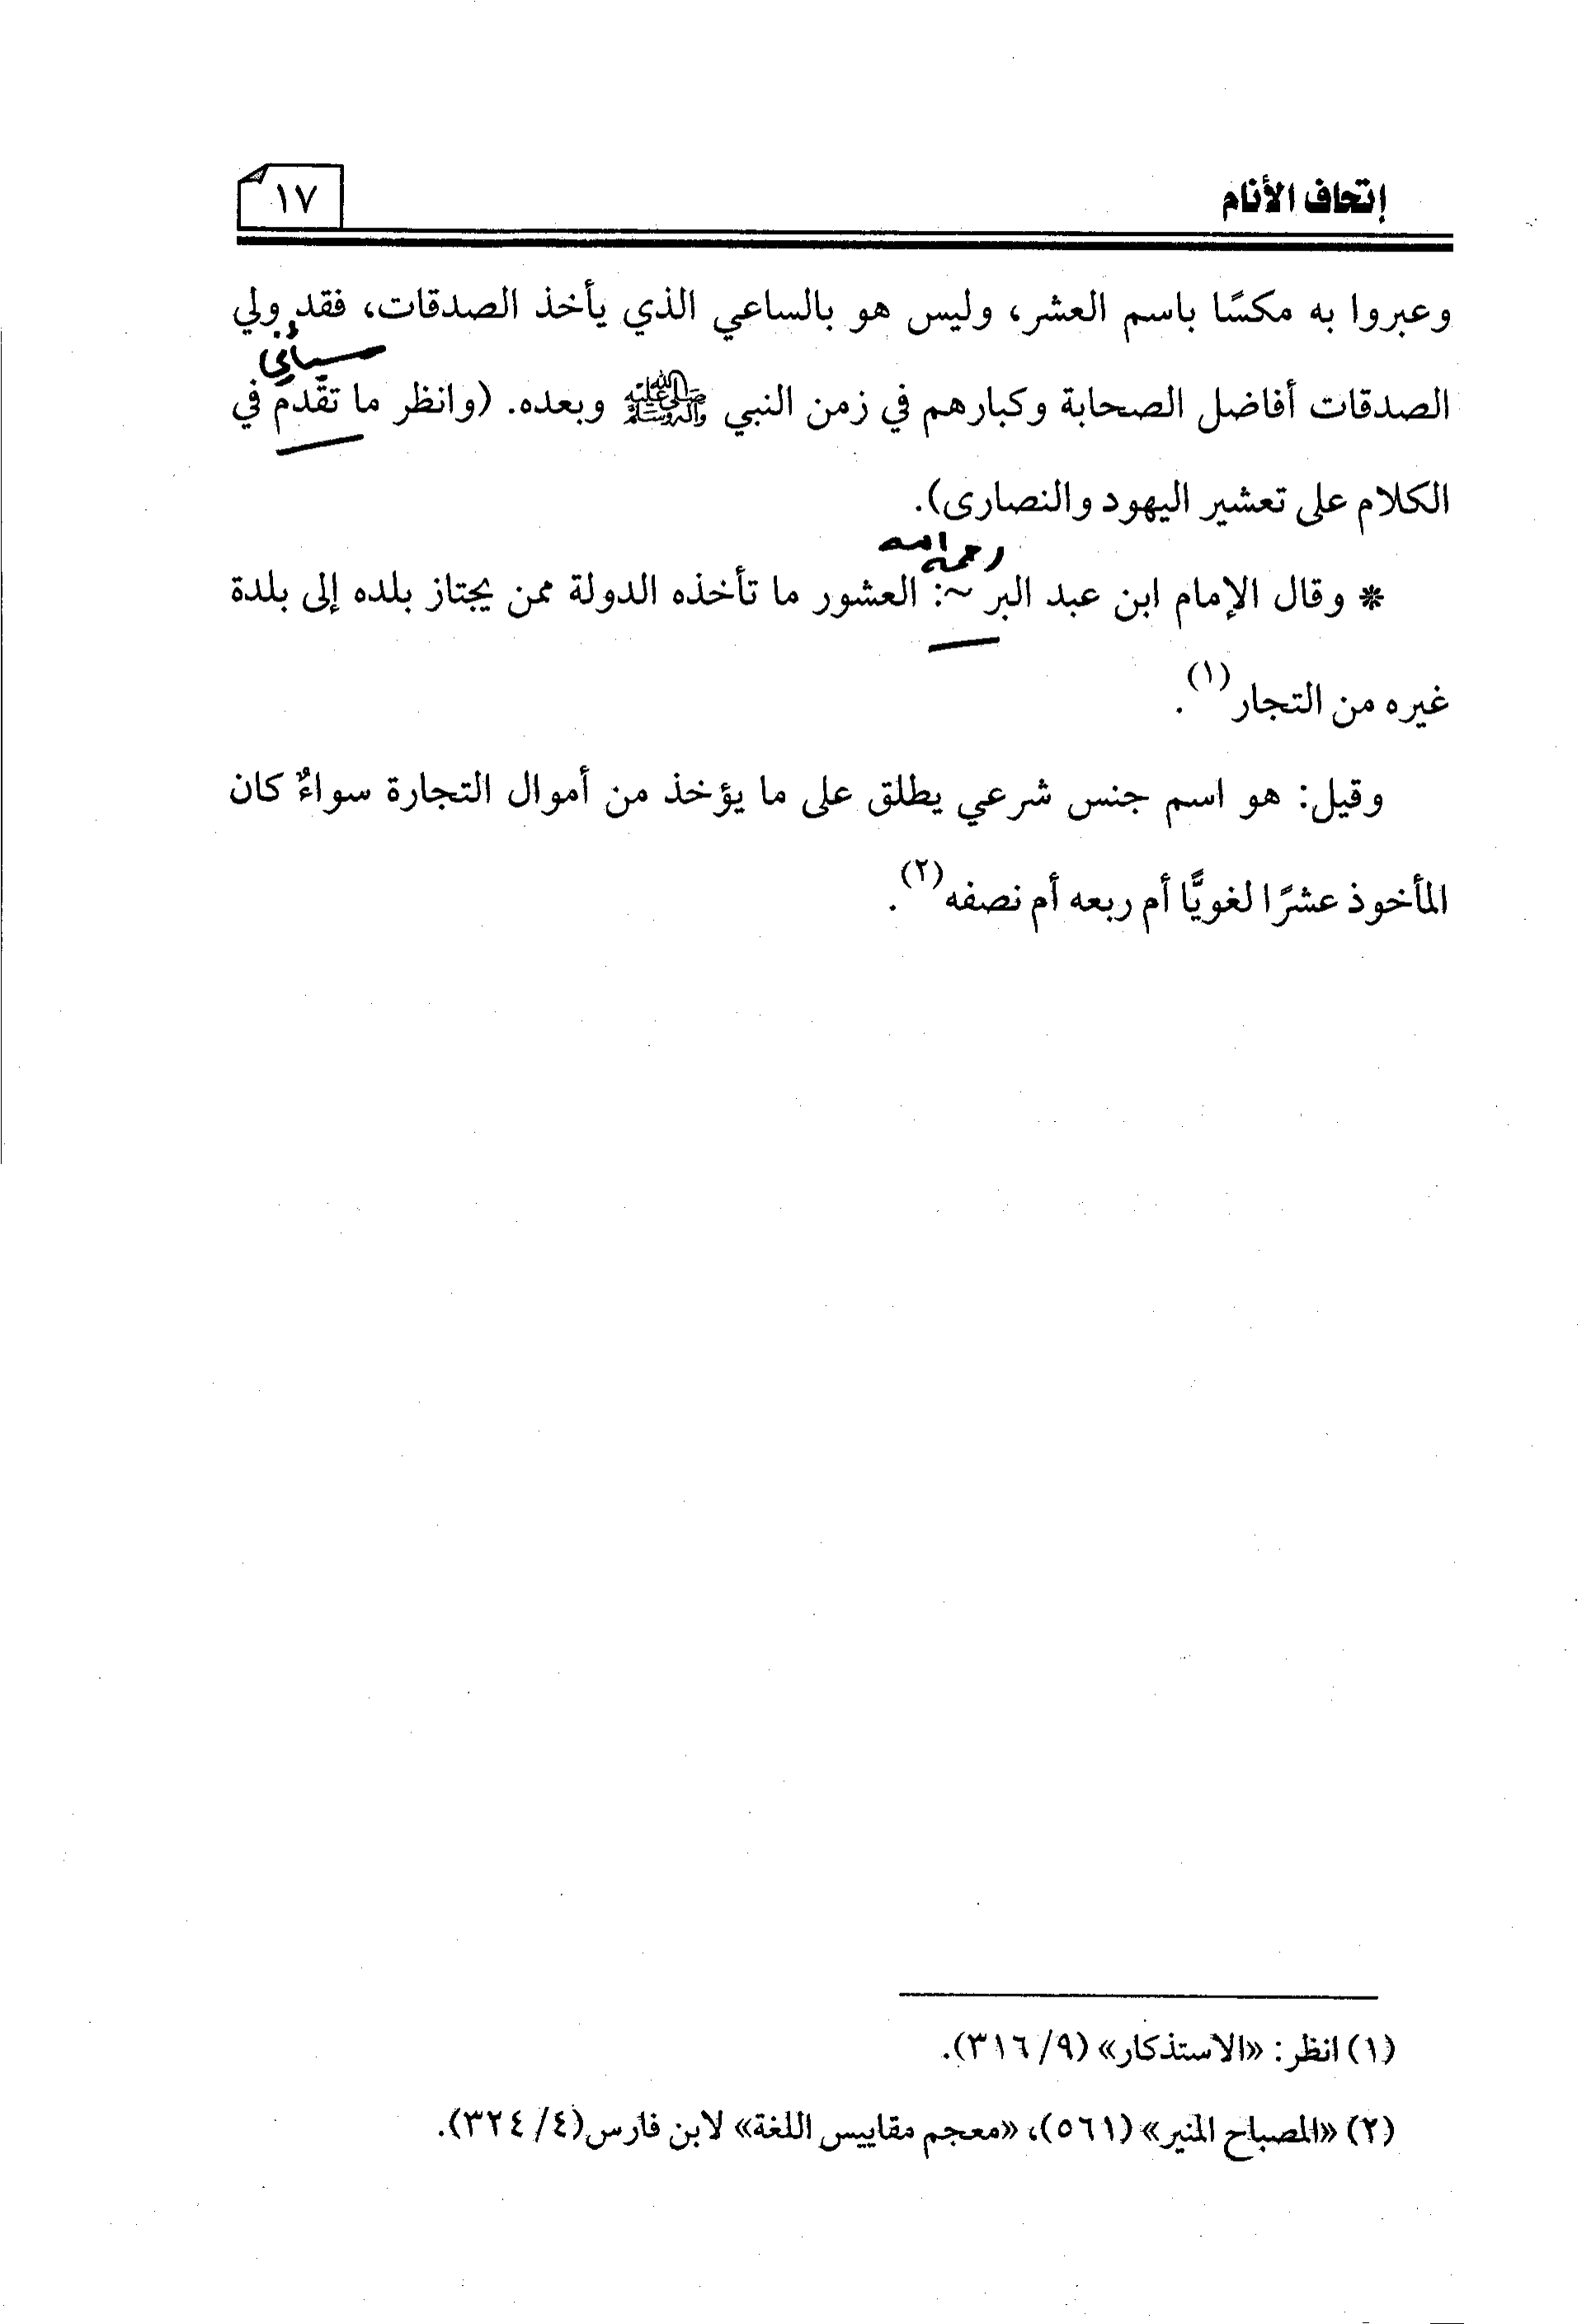 إتحاف الأنام
١٧
وعبروا به مكسًا باسم العشر، وليس هو بالساعي الذي يأخذ الصدقات، فقد ولي
سيأتي
الصدقات أفاضل الصحابة وكبارهم في زمن النبي ﷺ وبعده. (وانظر ما تقدم في
الكلام على تعشير اليهود والنصارى).
رحمه الله
* وقال الإمام ابن عبد البر ~: العشور ما تأخذه الدولة ممن يجتاز بلده إلى بلدة
غيره من التجار(١).
وقيل: هو اسم جنس شرعي يطلق على ما يؤخذ من أموال التجارة سواءٌ كان
المأخوذ عشرًا لغويًّا أم ربعه أم نصفه(٢).
(١) انظر: «الاستذكار» (٩/ ٣١٦).
(٢) «المصباح المنير» (٥٦١)، «معجم مقاييس اللغة» لابن فارس(٤/ ٣٢٤).